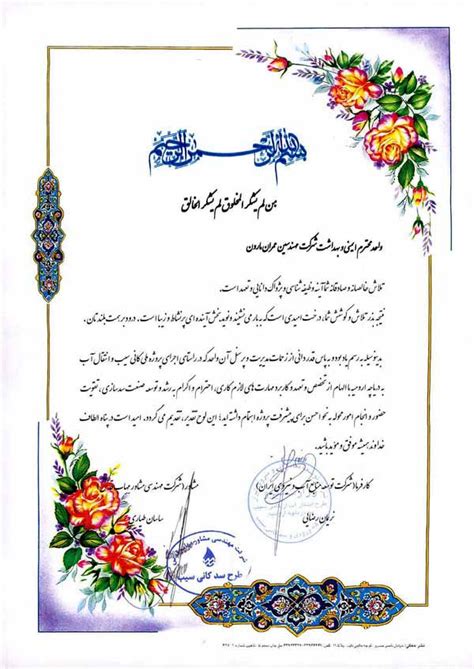 بسم الله الرحمن الرحیم
من لم یشکر المخلوق لم یشکر الخالق
واحد محترم ایمنی و بهداشت شرکت مهندسین عمران مارون
تلاش خالصانه و صادقانه شما آینه وظیفه شناسی و پژواک دانایی و تعهد است.
نتیجه بذر تلاش و کوشش شما، درخت امیدی است که به بار می نشیند و نوید بخش آینده ای پر نشاط و زیبا است. درود بر همت بلندتان.
بدینوسیله به رسم یادبود و به پاس قدردانی از زحمات مدیریت و پرسنل آن واحد که در راستای اجرای پروژه ملی کانی سیب و انتقال آب
به دریاچه ارومیه با الهام از تخصص و تعهد و کاربرد مهارت های لازم کاری، احترام و اکرام به رشد و توسعه صنعت سدسازی، تقویت
حضور و انجام امور محوله به نحو احسن برای پیشرفت پروژه اهتمام داشته اید؛ این لوح تقدیر، تقدیم می گردد. امید است در پناه الطاف
خداوند همیشه موفق و موید باشید.
کارفرما (شرکت توسعه منابع آب و نیروی ایران)
نریمان رضائی
مشاور (شرکت مهندسی مشاور مهاب
ساسان طیاری
شرکت مهندسی مشاور مهاب
طرح سد کانی سیب